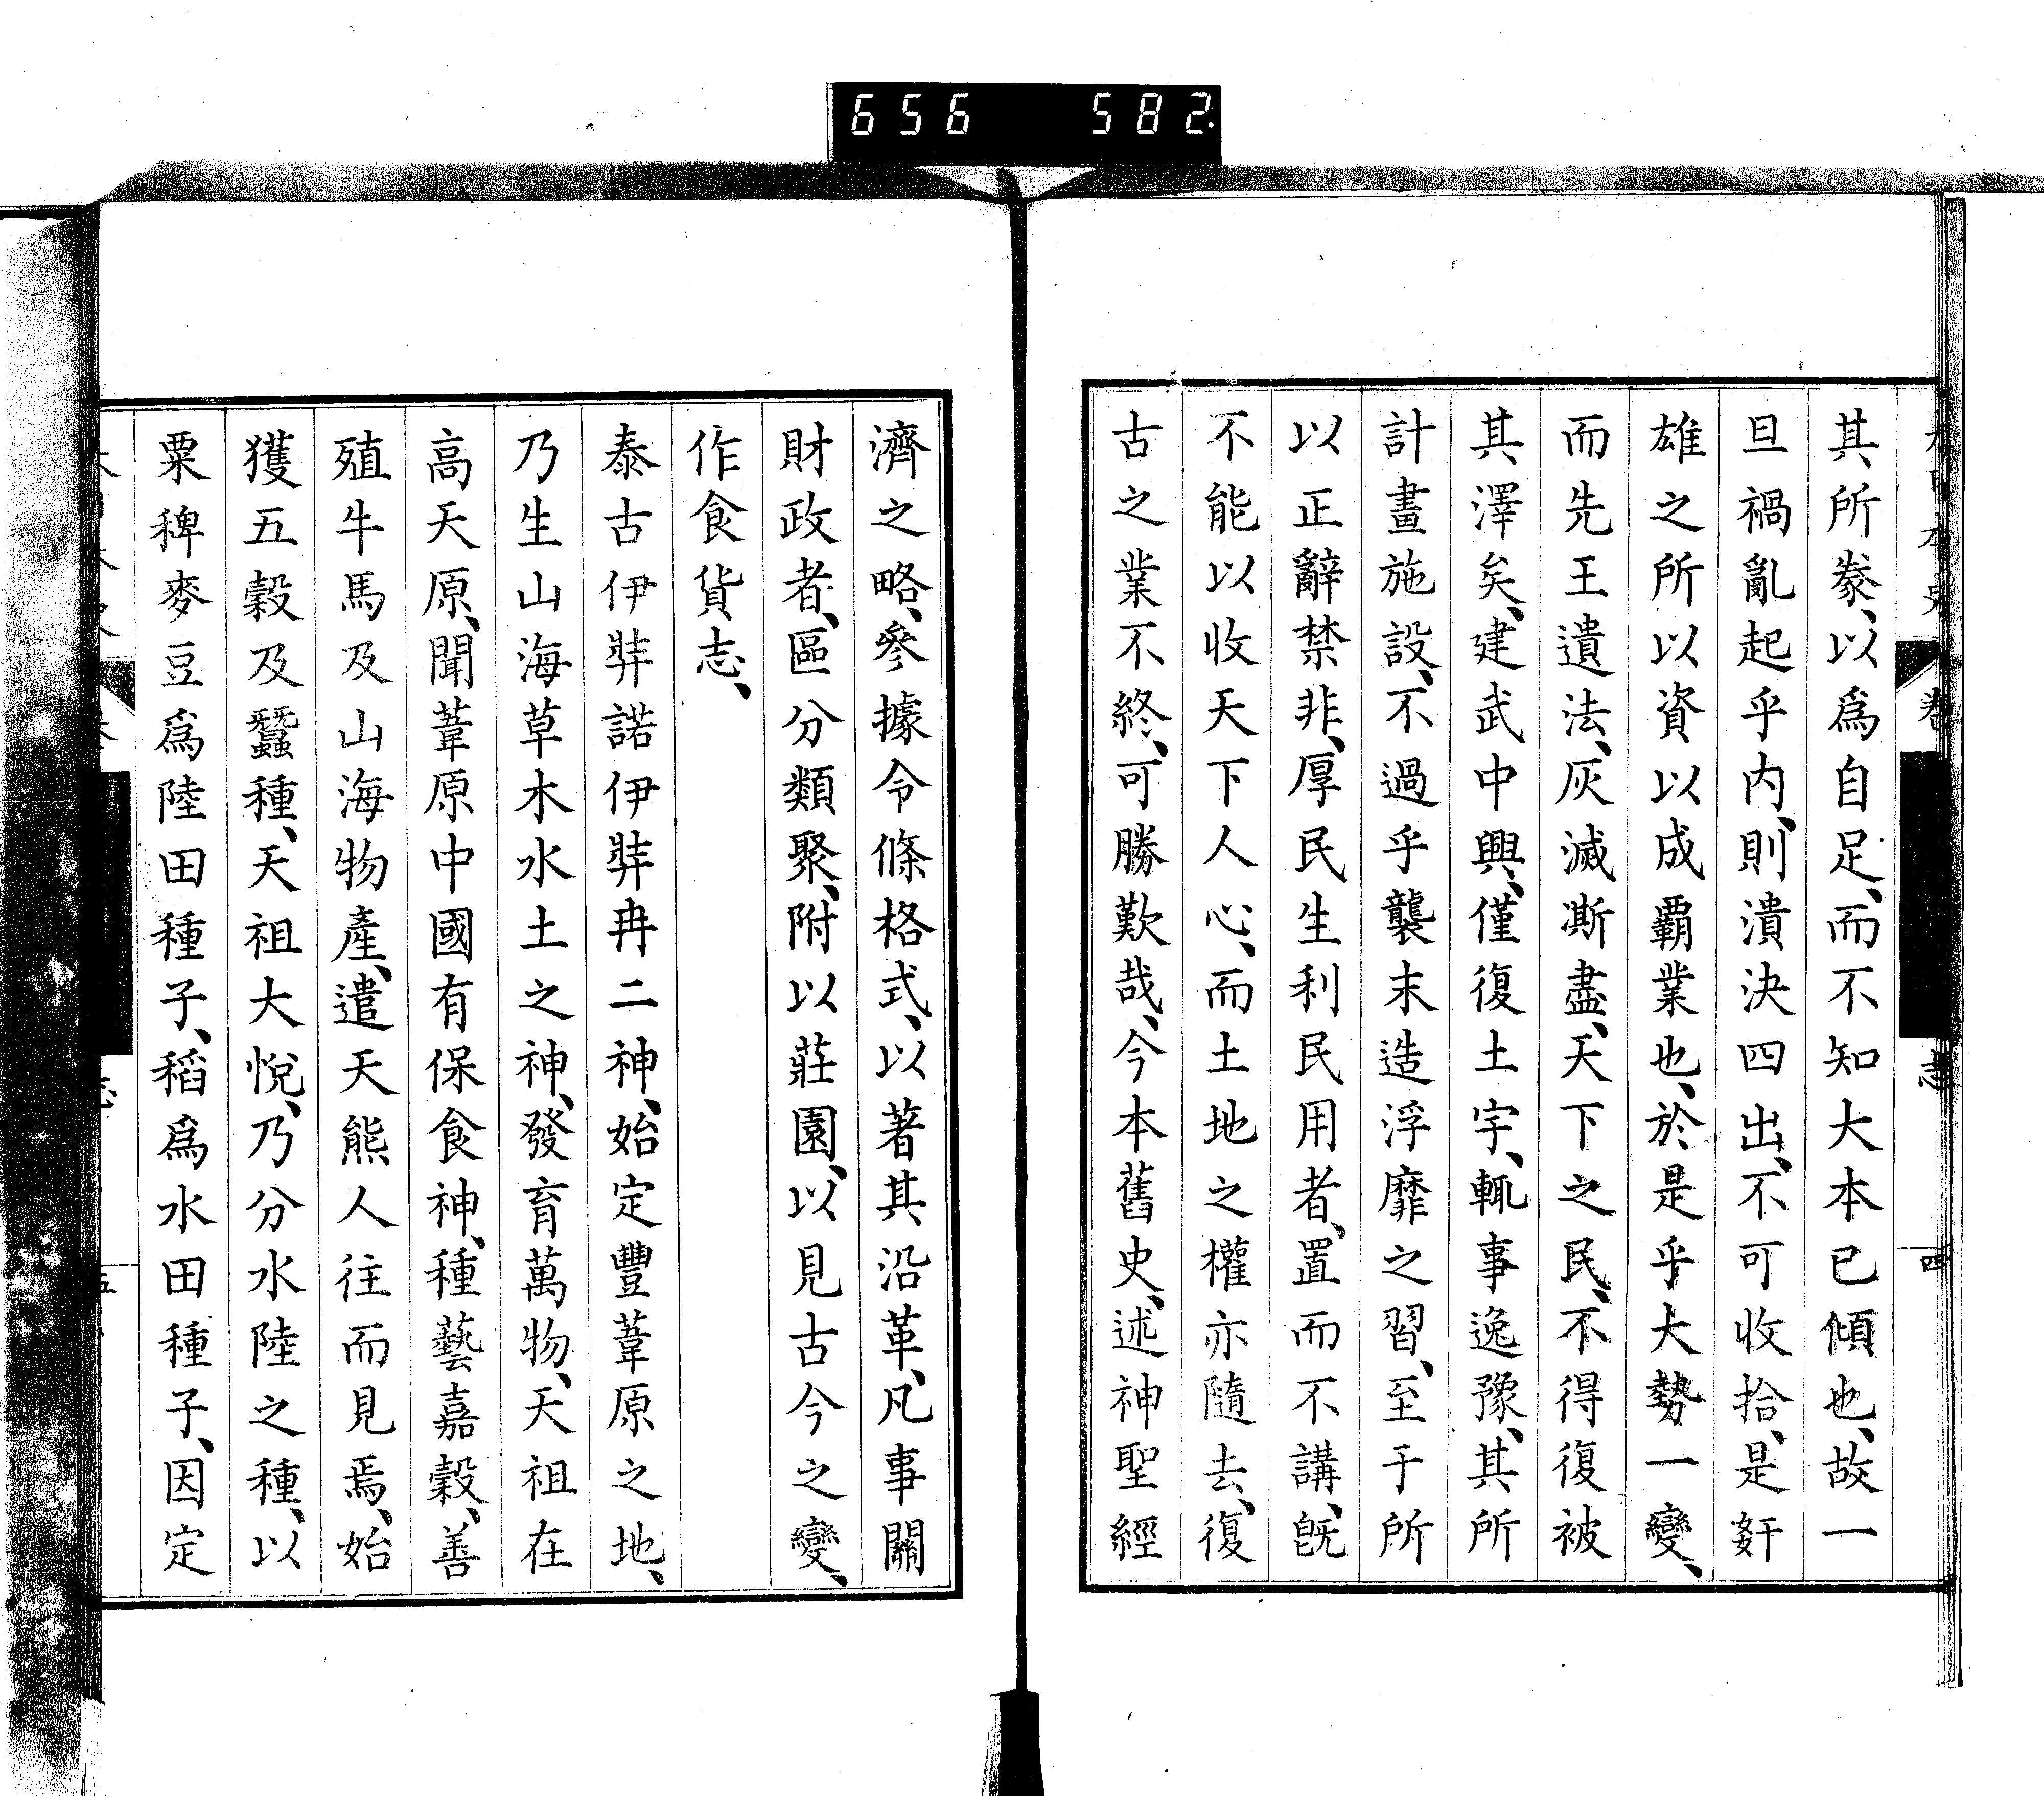 656 582.
其所豢、以爲自足、而不知大本已傾也、故一
旦禍亂起乎内、則潰決四出、不可收拾、是姧
雄之所以資以成覇業也、於是乎大勢一變、
而先王遺法、灰滅澌盡、天下之民、不得復被
其澤矣、建武中興、僅復土宇、輒事逸豫、其所
計畫施設、不過乎襲末造浮靡之習、至于所
以正辭禁非、厚民生利民用者、置而不講、旣
不能以收天下人心、而土地之權亦隨去、復
古之業不終、可勝歎哉、今本舊史、述神聖經
濟之略、參據令條格式、以著其沿革、凡事關
財政者、區分類聚、附以莊園、以見古今之變、
作食貨志、
泰古伊弉諾伊弉冉二神、始定豐葦原之地、
乃生山海草木水土之神、發育萬物、天祖在
高天原、聞葦原中國有保食神、種藝嘉穀、善
殖牛馬及山海物產、遣天熊人往而見焉、始
獲五穀及蠶種、天祖大悅、乃分水陸之種、以
粟稗麥豆爲陸田種子、稻爲水田種子、因定